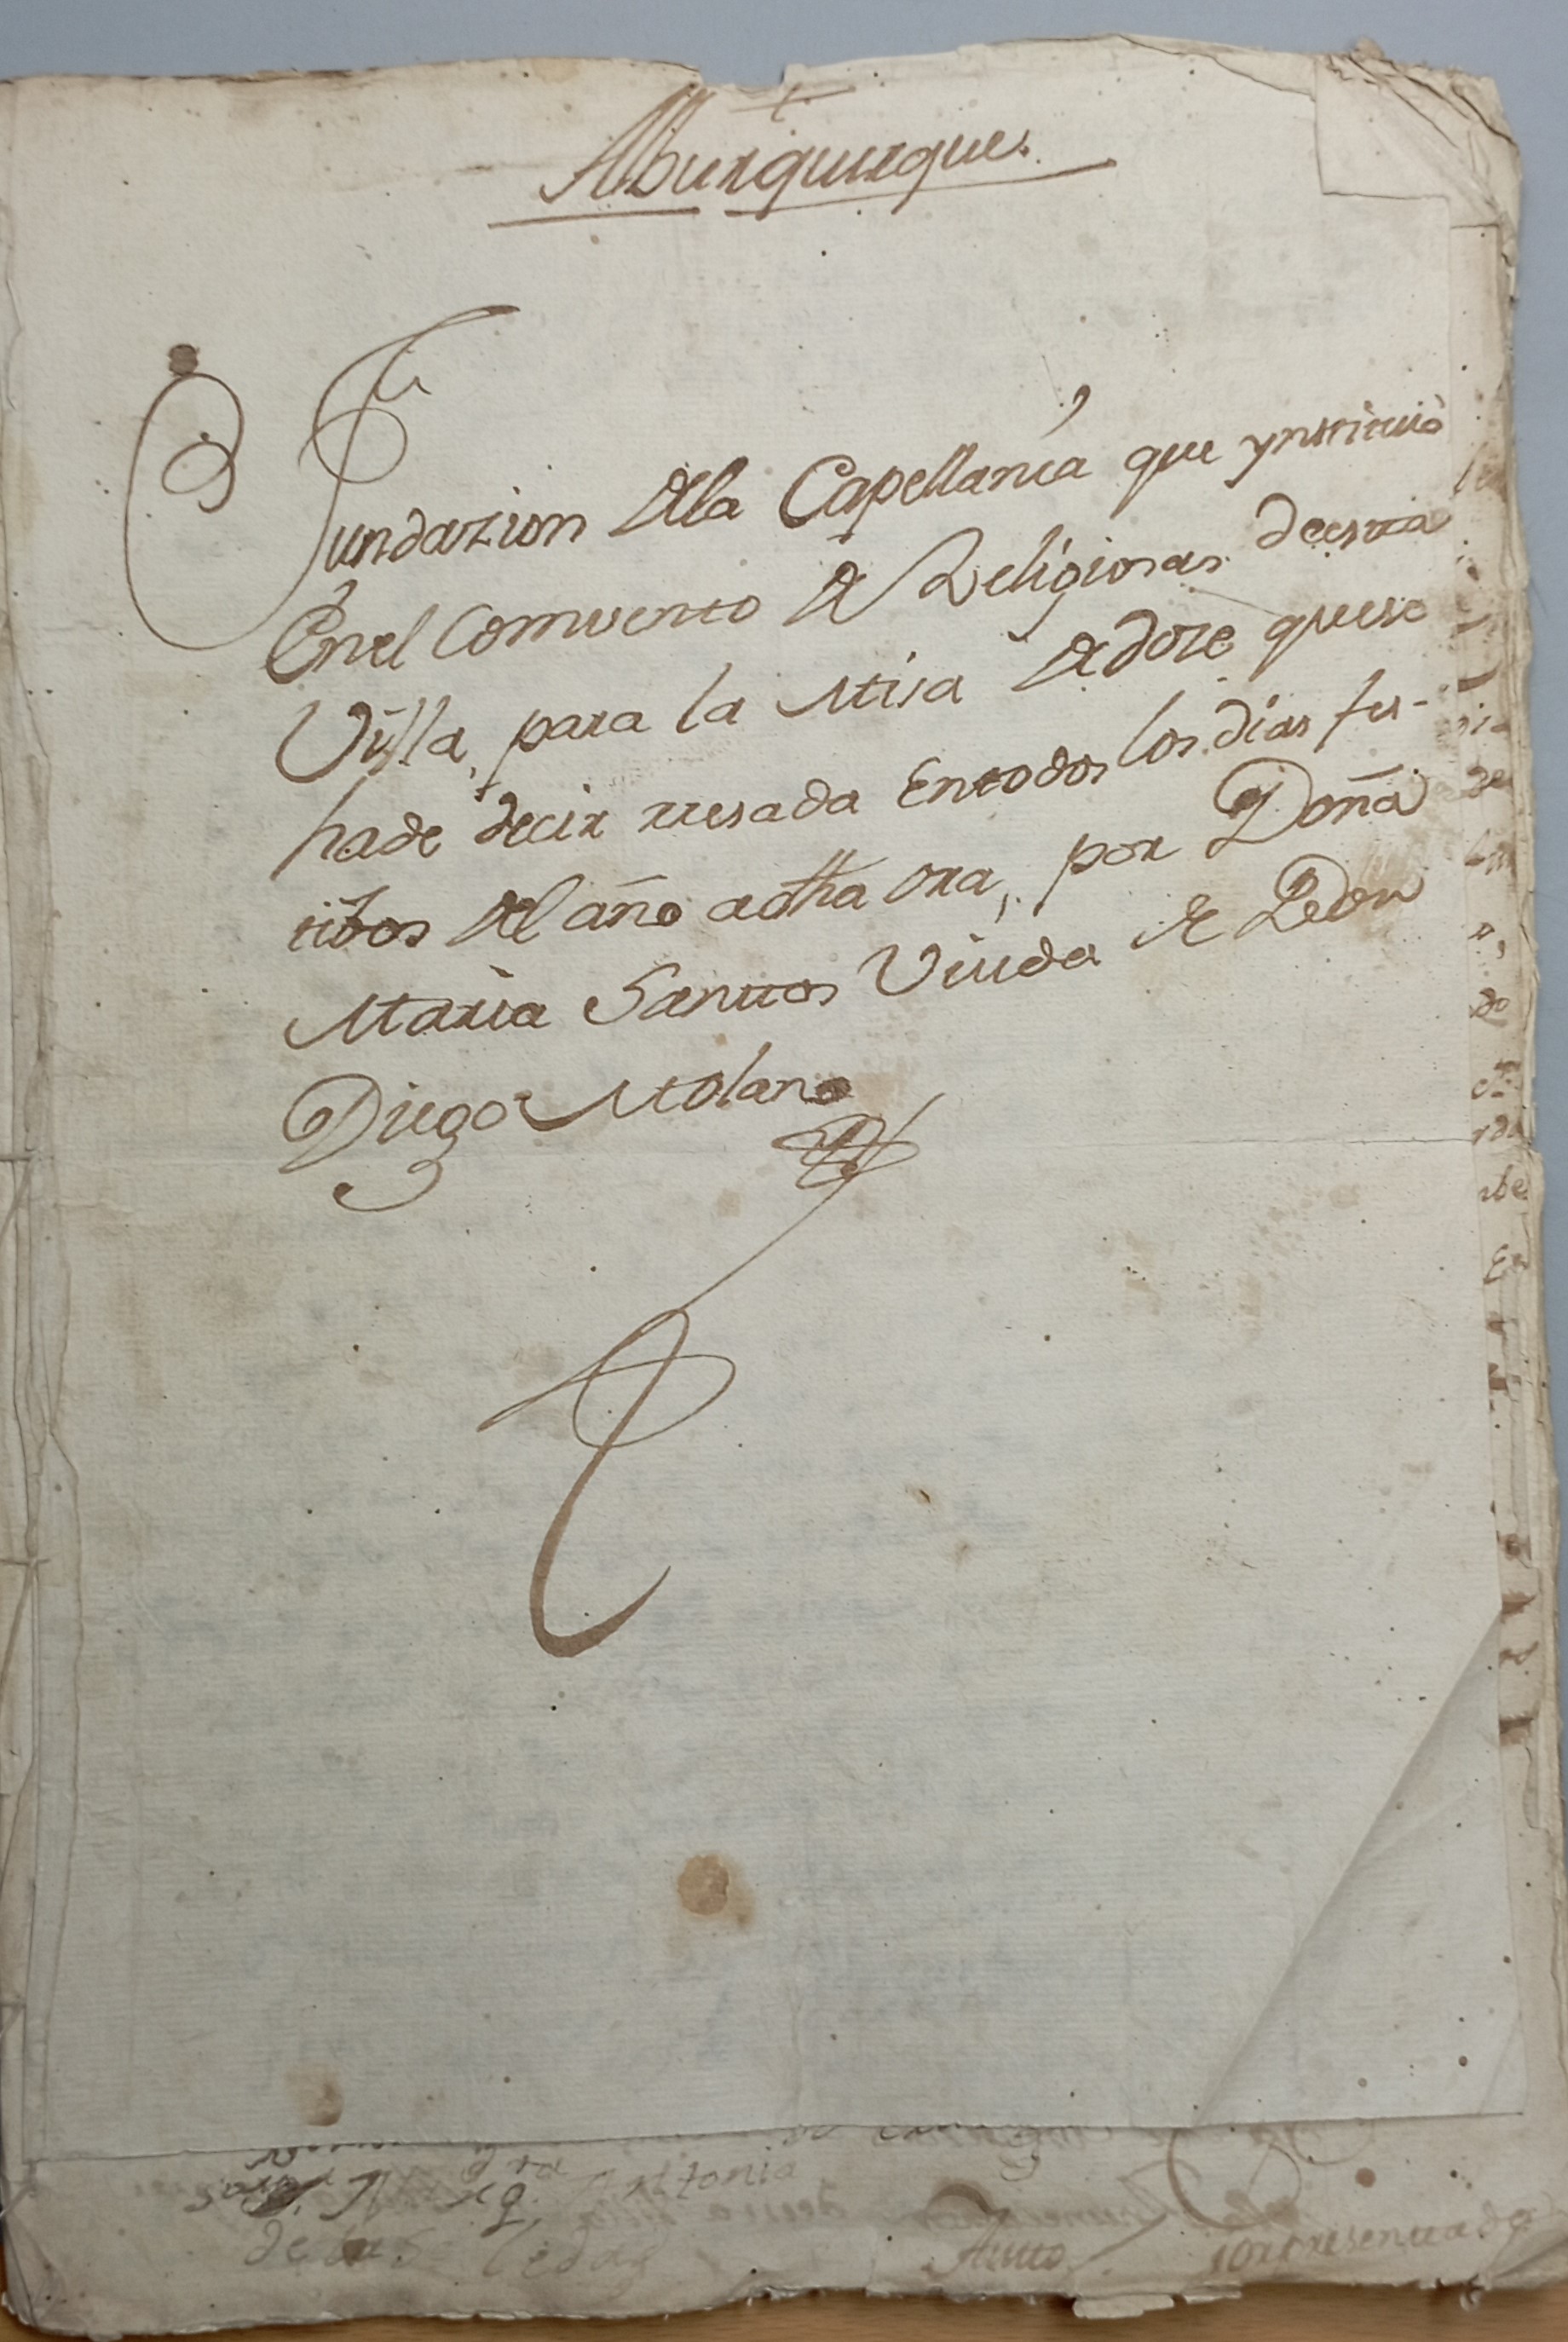 +
Alburquerque.
Fundazion dela Capellanìa que ynstituiò
Enel Comvento de Religiosas deesta
Villa, para la Misa dedoze quese
hade decir resada Entodos los dias fes-
tibos del año adha ora, por Doña
Maria Santtos Viuda de Don
Diego Molano
Antonia
Autto